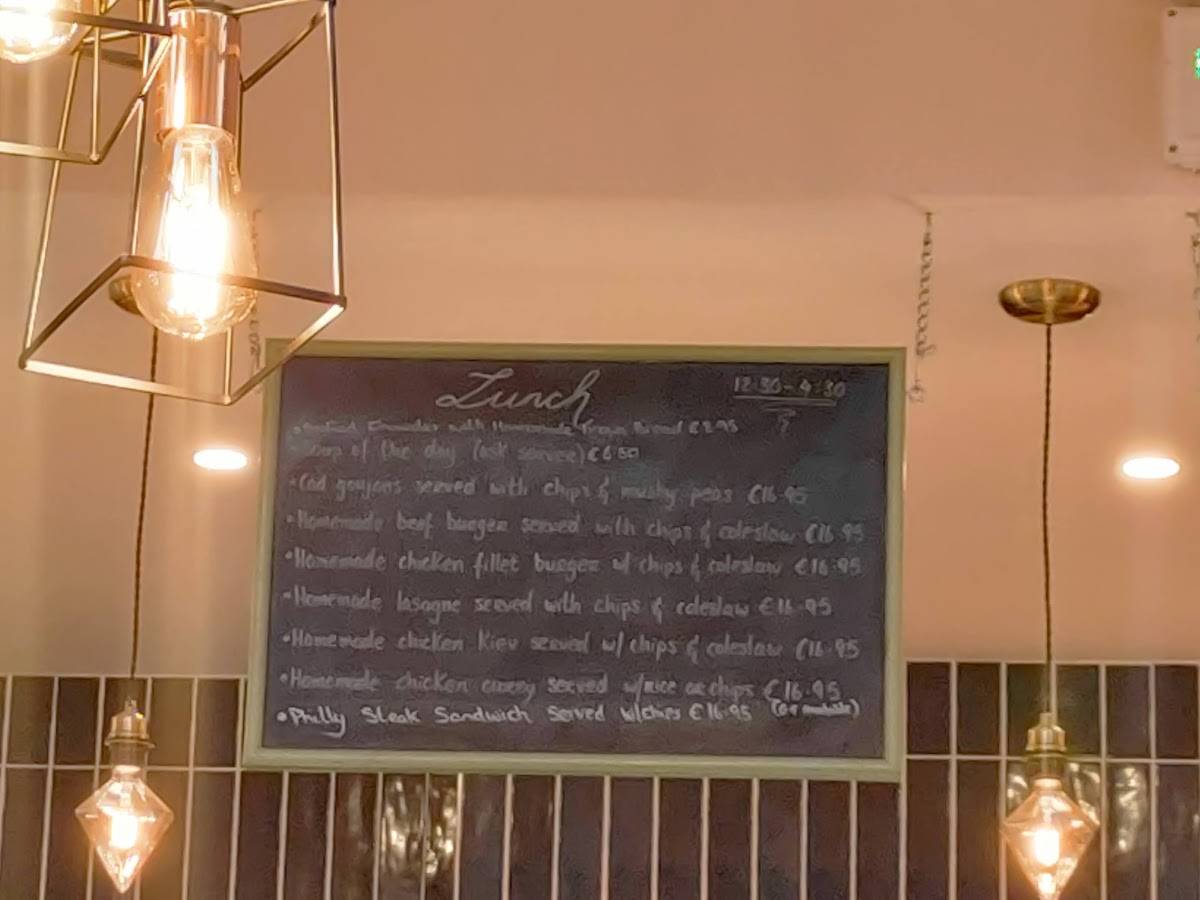 Lunch
12:30-4:30
with Homemade Brown Bread
Soup of the day (ask server) €6.50
•Cod goujons served with chips & mushy peas €16.95
•Homemade beef burger served with chips & coleslaw €16.95
•Homemade chicken fillet burger w/ chips & coleslaw €16.95
•Homemade lasagne served with chips & coleslaw €16.95
•Homemade chicken Kiev served w/ chips & coleslaw €16.95
•Homemade chicken curry served w/rice or chips €16.95
•Philly Steak Sandwich Served w/chips €16.95